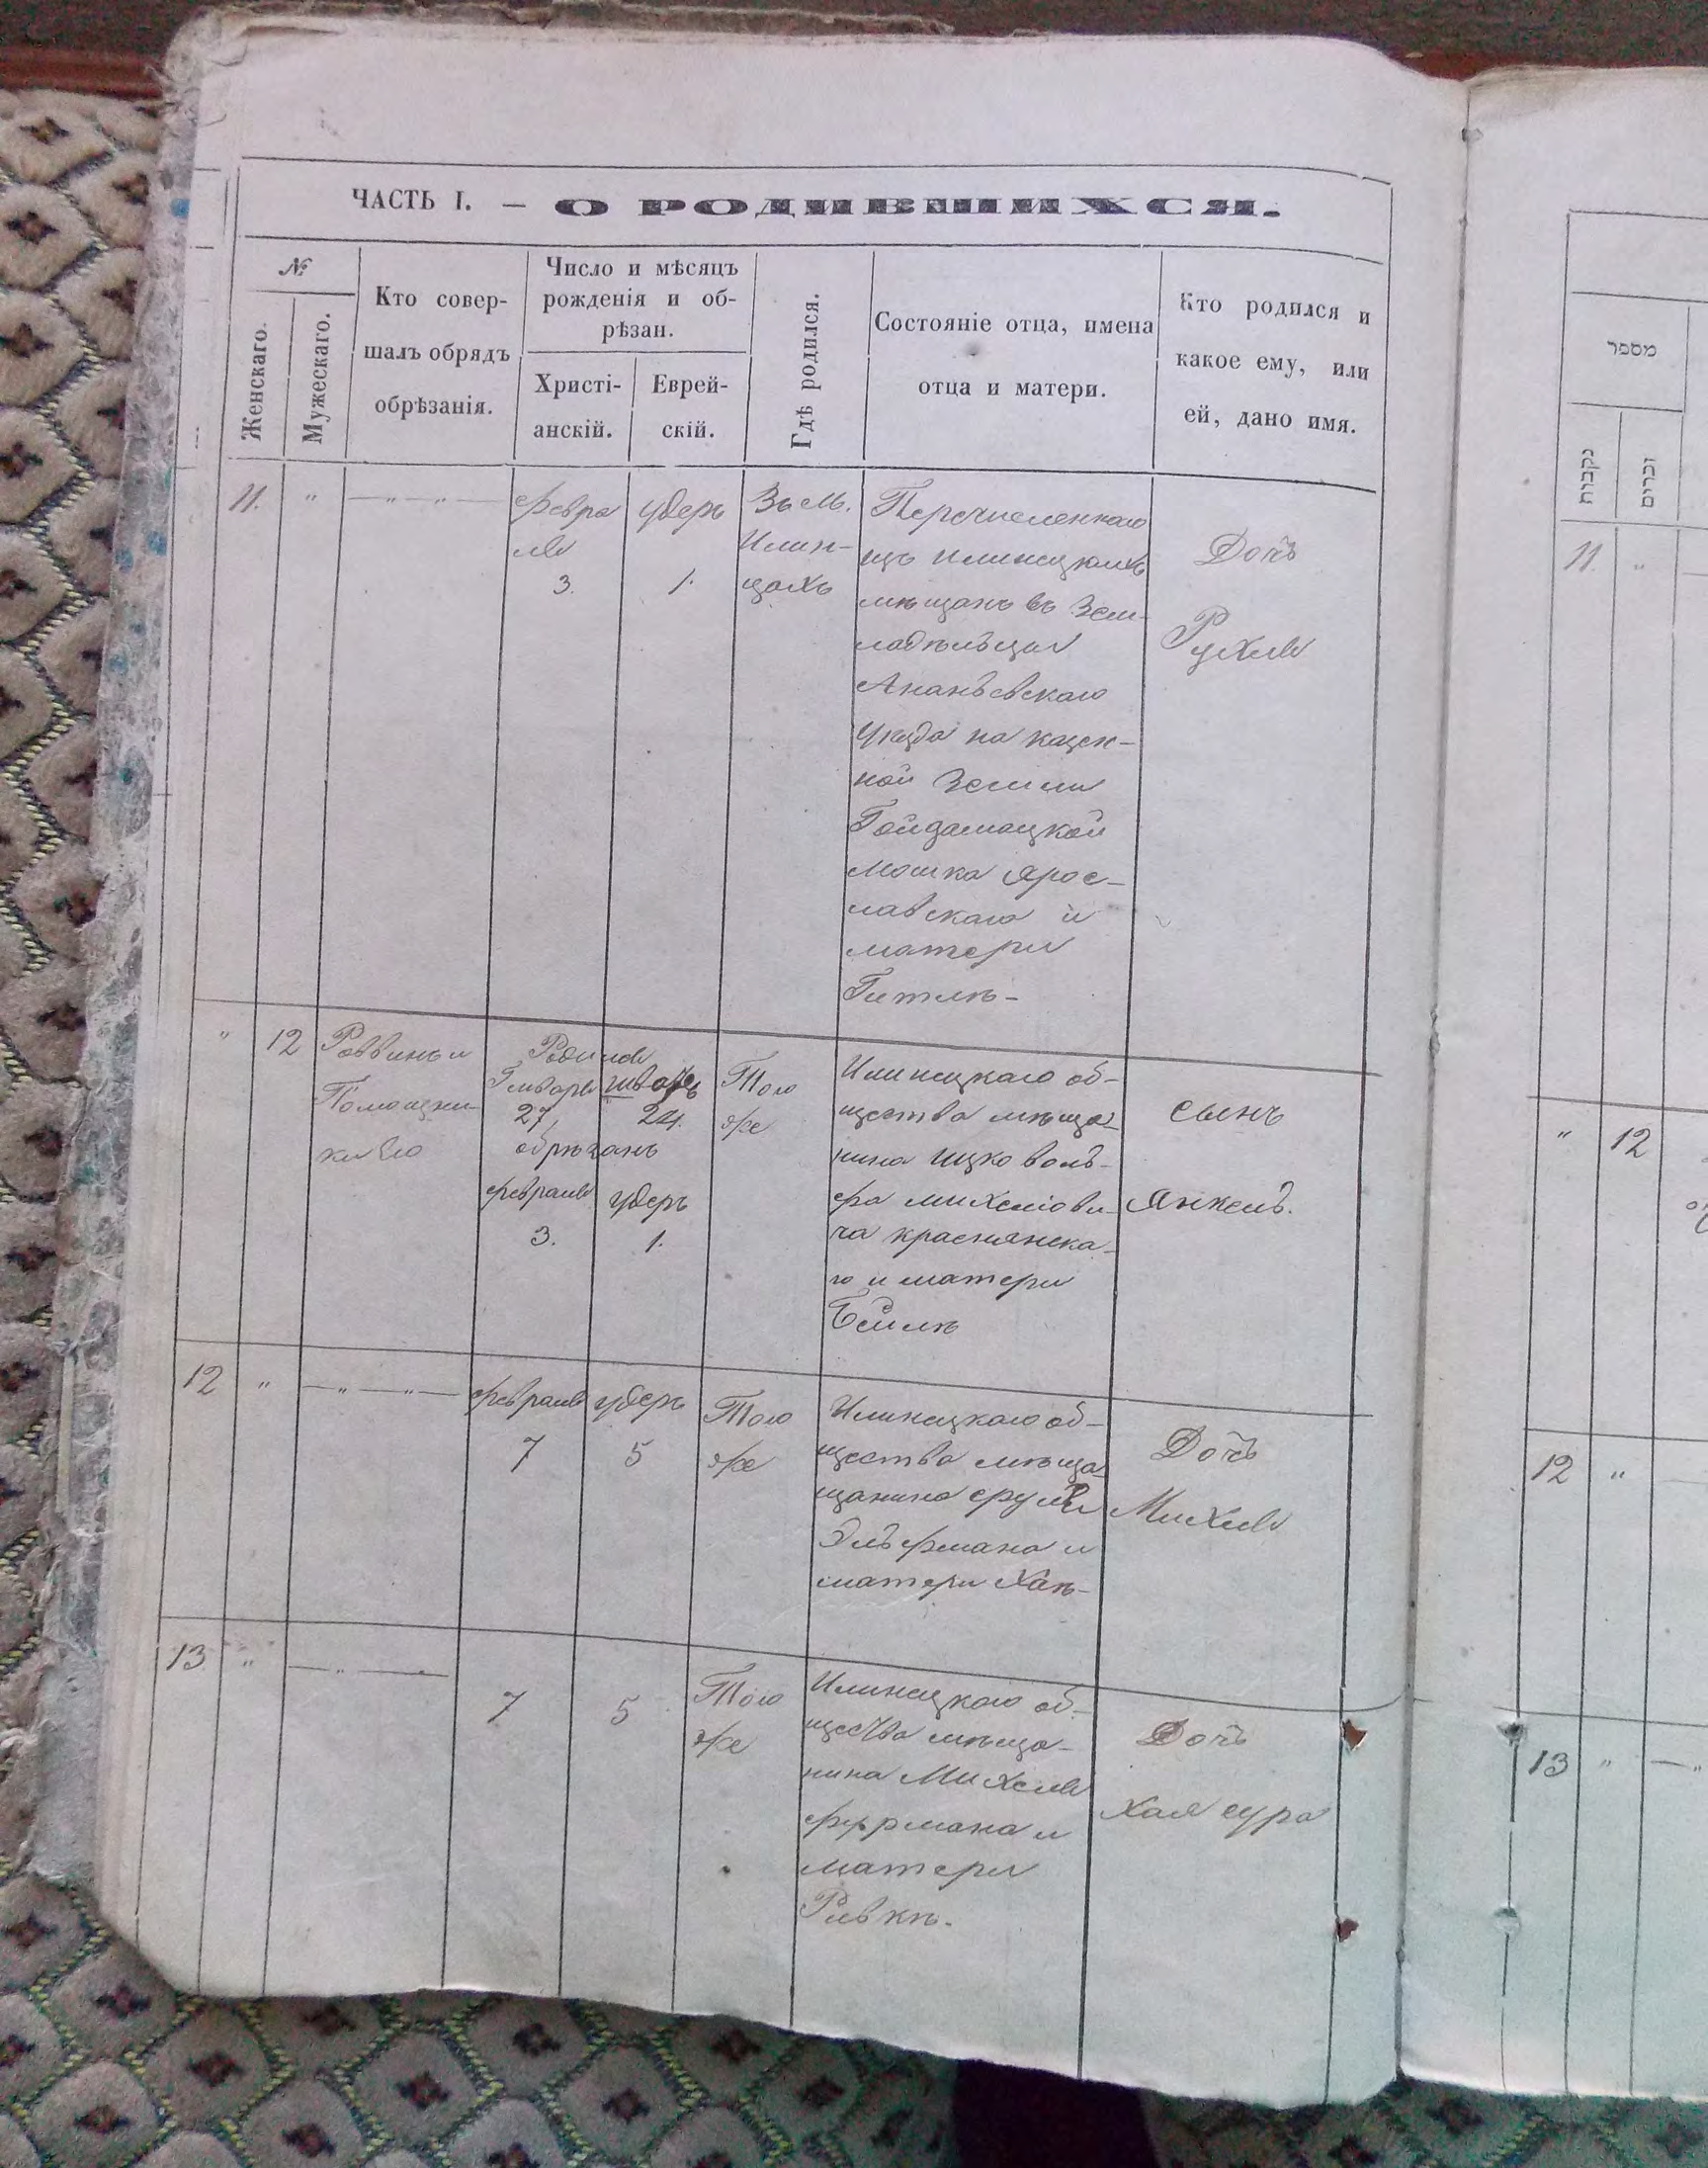 ЧАСТЬ I. — О РОДИВШИХСЯ.
№
Женскаго.
Мужескаго.
Кто совер-
шалъ обрядъ
обрѣзанія.
Число и мѣсяцъ
рожденія и об-
рѣзан.
Христі-
анскій.
Еврей-
скій.
Гдѣ родился.
Состояніе отца, имена
отца и матери.
Кто родился и
какое ему, или
ей, дано имя.
11. " — " — " —
Февра
ля
3.
удеръ
1.
Въ м.
Илин-
цахъ
Перечисленнаго
изъ Илинецкихъ
мѣщанъ въ Зем-
ладѣльцы
Ананьевскаго
уѣзда на казен-
ной Земли
Гайдамацкой
Мошка Ярос-
лавскаго и
матери
Гитлѣ-
Дочь
Рухля
" 12
Раввинъ и
Помощни-
къ Его
Родился
Генваря
27
шватъ
24.
обрѣзанъ
Февраля
3.
удеръ
1.
Того
же
Илинецкаго об-
щества мѣща-
нина Ицко Воль-
фа Михелiови-
ча Краснянска-
го и матери
Бейлѣ
сынъ
Янкель.
12 " — " — " —
Февраля
7
удеръ
5
Того
же
Илинецкаго об-
щества мѣща-
щанина Сруля
Эльфмана и
матери Хаѣ-
Дочь
Михля
13 " — " —
7
5
Того
же
Илинецкаго об-
щества мѣща-
нина Михеля
Фурмана и
матери
Ривкѣ.
Дочь
Хая Сура
מספר
נקבות
זכרים
11. "
" 12
12 "
13 " — "